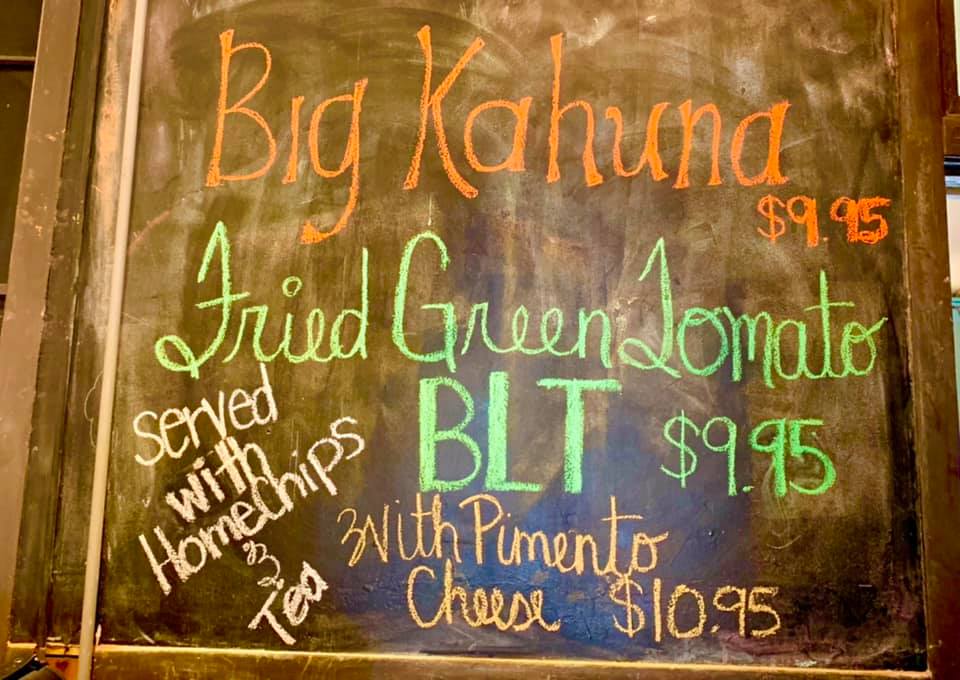 Big Kahuna
$9.95
Fried Green Tomato
BLT $9.95
Served
with
Home Chips
&
Tea
With Pimento
Cheese $10.95